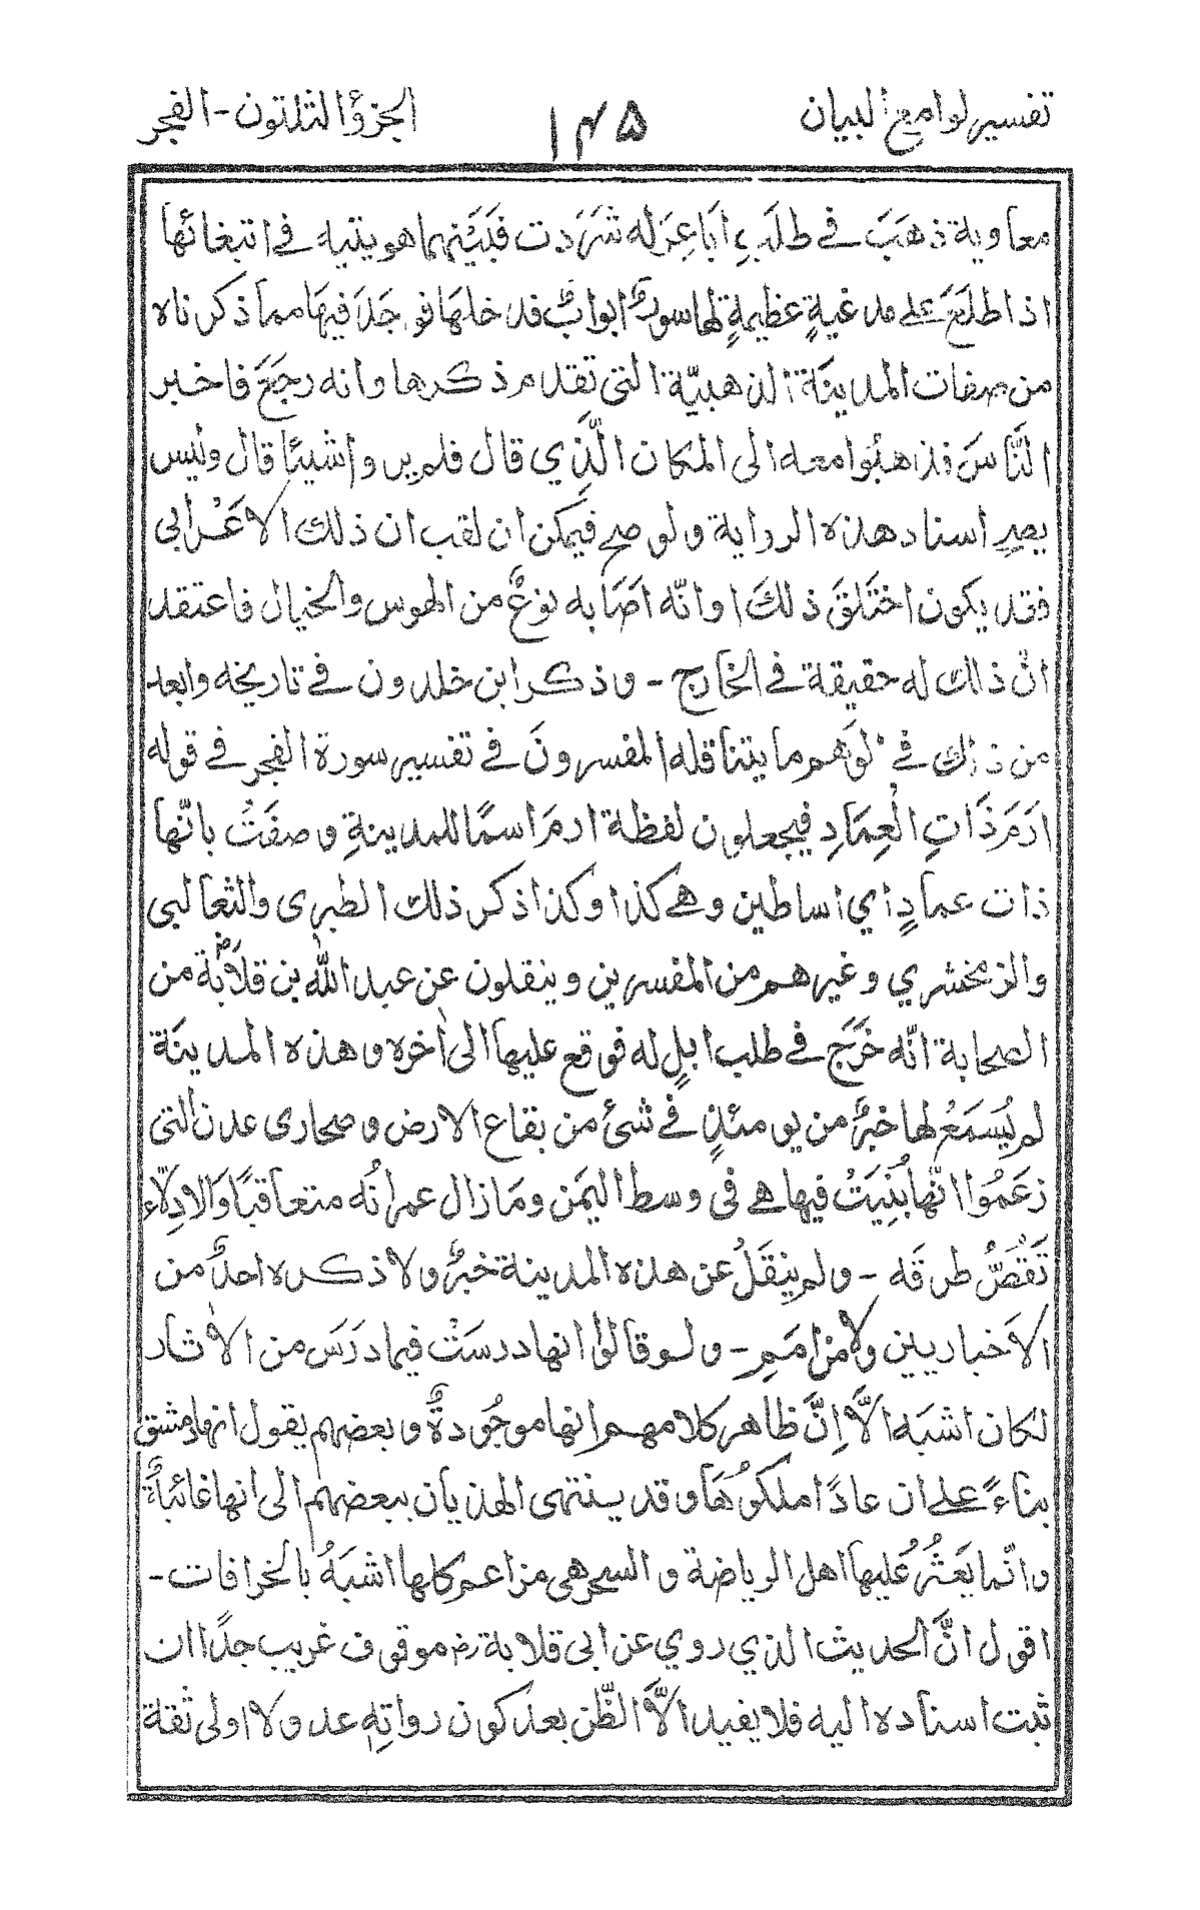 تفسير لوامع البيان ١٣۵ الجزؤ الثلثون - الفجر
معاوية ذهَبَ في طلَبِ اَبَاعِرَ له شَرَدَت فَبَيْنهما هو يتيه في ابتغائها
اذا طلَعَ على مدينةٍ عظيمةٍ لها سورٌ ابوابٌ فدخلهَا فوجَدَ فيهَا مما ذكرناه
من صفات المدينَة الذهبيّة التى تقدم ذكرها وانه رجَعَ فاخبر
النَّاسَ فذهبُوا معه الى المكان الَّذِي قال فلم يروا شيئًا قال وليس
يصح اسناد هذه الرواية ولو صح فيَمكن ان لقب ان ذلك الاعْرابى
فقد يكون اختَلقَ ذلكَ اوانّه اصَابه نوعٌ من الهوس والخيال فاعتقد
انّ ذلك له حقيقة في الخارج - وذكر ابن خلدون في تاريخه وابعد
من ذلك في الوَهم ما يتناقله المفسرونَ في تفسير سورة الفجر في قوله
ارَمَ ذَاتِ الْعِمَادِ فيجعلون لفظة ارمَ اسمًا للمدينةِ وصفَتْ بانّها
ذات عمادٍ اي اساطين وهي كذا وكذا ذكر ذلك الطبرى والثعالبى
والزمخشري وغيرهم من المفسرين وينقلون عن عبد اللّٰه بن قلابَة من
الصحابة انّه خَرَجَ في طلب ابلٍ له فوقع عليها الى اٰخره وهذه المدينَة
لم يُسمَعْ لها خبرٌ من يومئذٍ في شئ من بقاع الارض وصحارى عدن التى
زعَمُوا انّها بُنِيَتْ فيها هي فى وسط اليَمن ومَا زال عمرانُه متعاقبًا وَالادِلّاء
تَقُصُّ طرقَه - ولم ينقَلْ عن هذه المدينة خبرٌ ولا ذكره احدٌ من
الاَخباريين ولامن امَمٍ - ولو قالوا انها درسَتْ فيما درَسَ من الاٰثار
لكان اشبَه الاَّ اِنَّ ظاهر كلامهم انها موجُودةٌ وبعضهم يقول انها دمشق
بناءً على ان عادًا ملكُوهَا وقد ينتهى الهذيان ببعضهم الى انها غائبةٌ
وانّما يَعثُرُ عليها اهل الرياضة والسحر هى مزاعم كلها اشبَهُ بالخرافات -
اقول انَّ الحديث الذي روي عن ابى قلابة رض موقوف غريب جدًا ان
ثبت اسناده اليه فلا يفيد الاَّ الظّن بعد كون رواتِهِ عدولا اولى ثقة